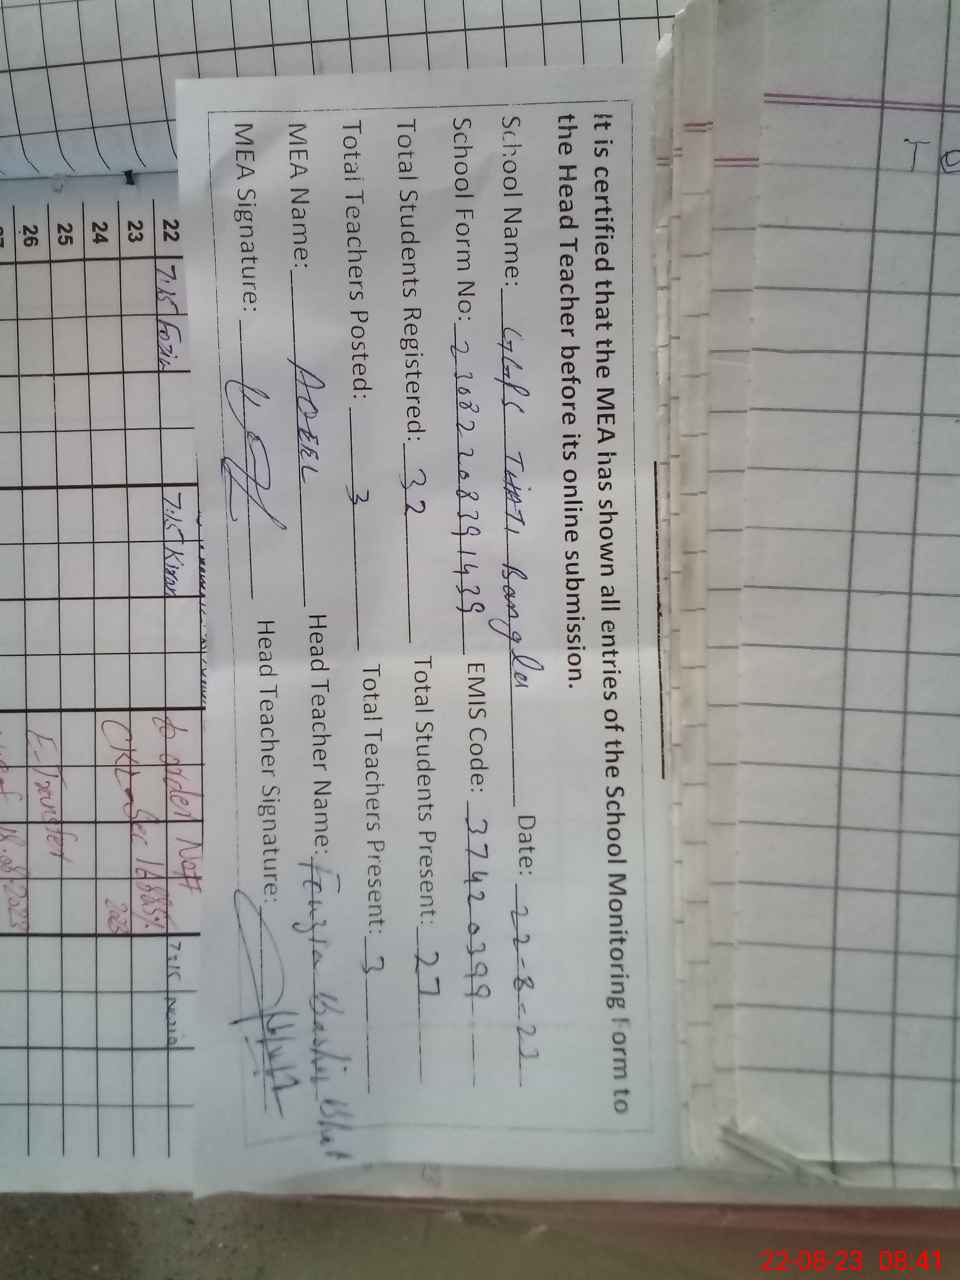 It is certified that the MEA has shown all entries of the School Monitoring Form to
the Head Teacher before its online submission.
School Name: GGPS Bangla Date: 22-8-23
School Form No: 23082208391439 EMIS Code: 37420399
Total Students Registered: 32 Total Students Present: 27
Total Teachers Posted: 3 Total Teachers Present: 3
MEA Name: ADEEL Head Teacher Name: Fouzia Bashir Bhat
MEA Signature: Head Teacher Signature:
22 7:15 Fozia 7:15 Kiran 7:15
23
24 2023
25 E-Transfer
26
27
22-08-23 08:41